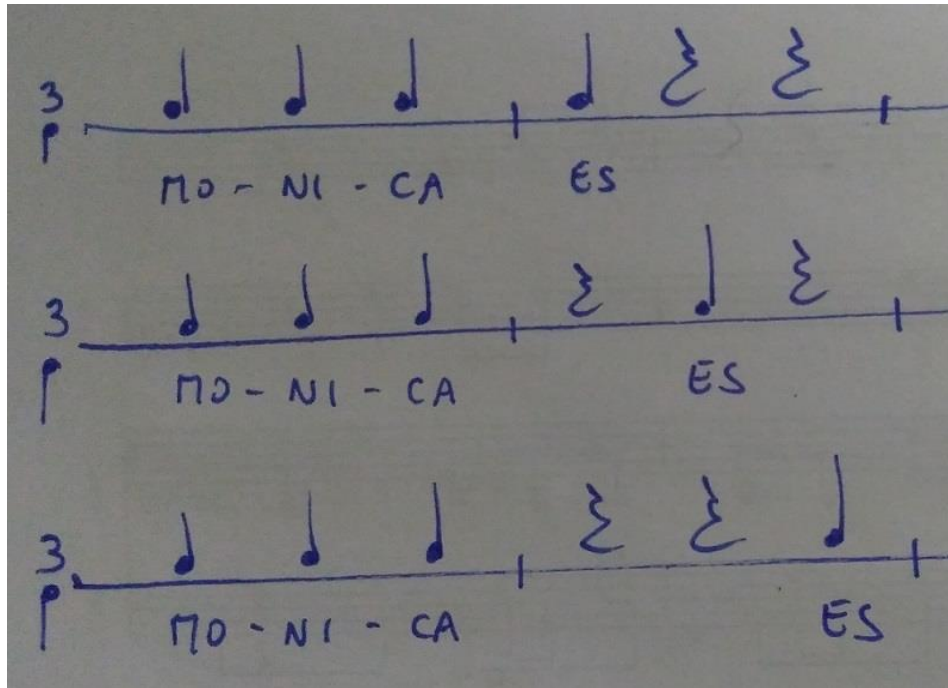 3
MO - NI - CA ES
3
MO - NI - CA ES
3
MO - NI - CA ES